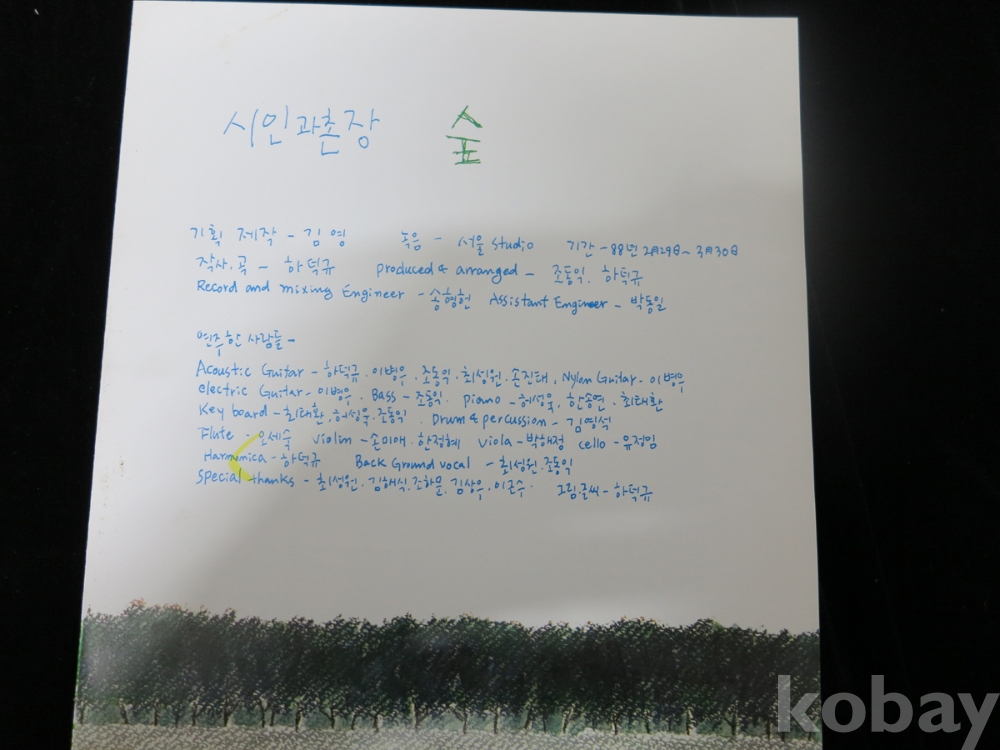 시인과촌장 숲
기획 제작 - 김영 녹음 - 서울 studio 기간 - 88년 2月29日 ~ 3月30日
작사.곡 - 하덕규 produced & arranged - 조동익. 하덕규
Record and mixing Engineer - 송형헌 Assistant Engineer - 박동일
연주한 사람들 -
Acoustic Guitar - 하덕규. 이병우. 조동익. 최성원. 손진태, Nylon Guitar - 이병우
electric Guitar - 이병우. Bass - 조동익. piano - 허성욱, 한송연. 최태환
Key board - 최태환, 허성욱. 조동익. Drum & percussion - 김영석
Flute - 오세숙 violin - 손미애. 한정혜 viola - 박해정 cello - 유정임
Harmonica - 하덕규 Back Ground vocal - 최성원. 조동익
Special thanks - 최성원. 김해식. 조하문. 김상우. 이근수. 그림.글씨 - 하덕규
kobay